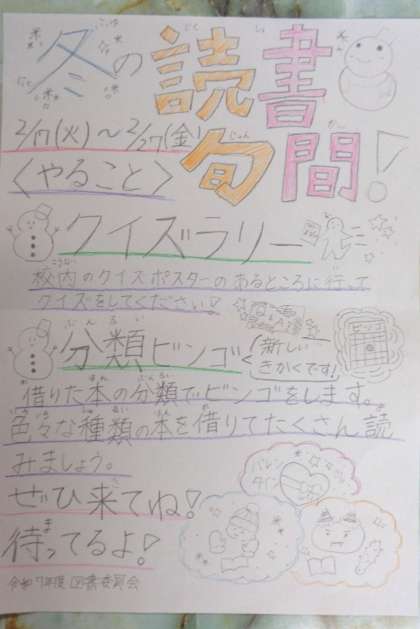 冬の読書旬間!
2/17(火)～2/27(金)
〈やること〉
クイズラリー
校内のクイズポスターのあるところに行って
クイズをしてください!
分類ビンゴ
新しい
きかくです!!
借りた本の分類でビンゴをします。
色々な種類の本を借りてたくさん読
みましょう。
バレン
タイン
ぜひ来てね!
待ってるよ!
令和7年度 図書委員会